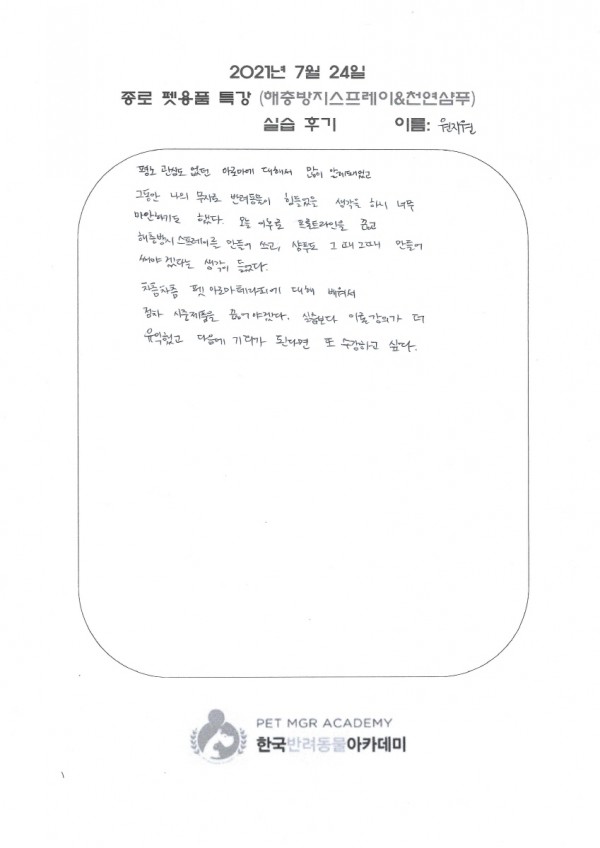 2021년 7월 24일
종로 펫용품 특강 (해충방지스프레이&천연샴푸)
실습 후기 이름: 원자월
평소 관심도 없던 아로마에 대해서 많이 알게되었고
그동안 나의 무지로 반려동물이 힘들었을 생각을 하니 너무
미안하기도 했다. 오늘 이후로 프론트라인을 끊고
해충방지 스프레이를 만들어 쓰고, 샴푸도 그때그때 만들어
써야겠다는 생각이 들었다.
차츰차츰 펫 아로마테라피에 대해 배워서
점차 시중제품을 끊어야겠다. 실습보다 이론강의가 더
유익했고 다음에 기회가 된다면 또 수강하고 싶다.
PET MGR ACADEMY
한국반려동물아카데미